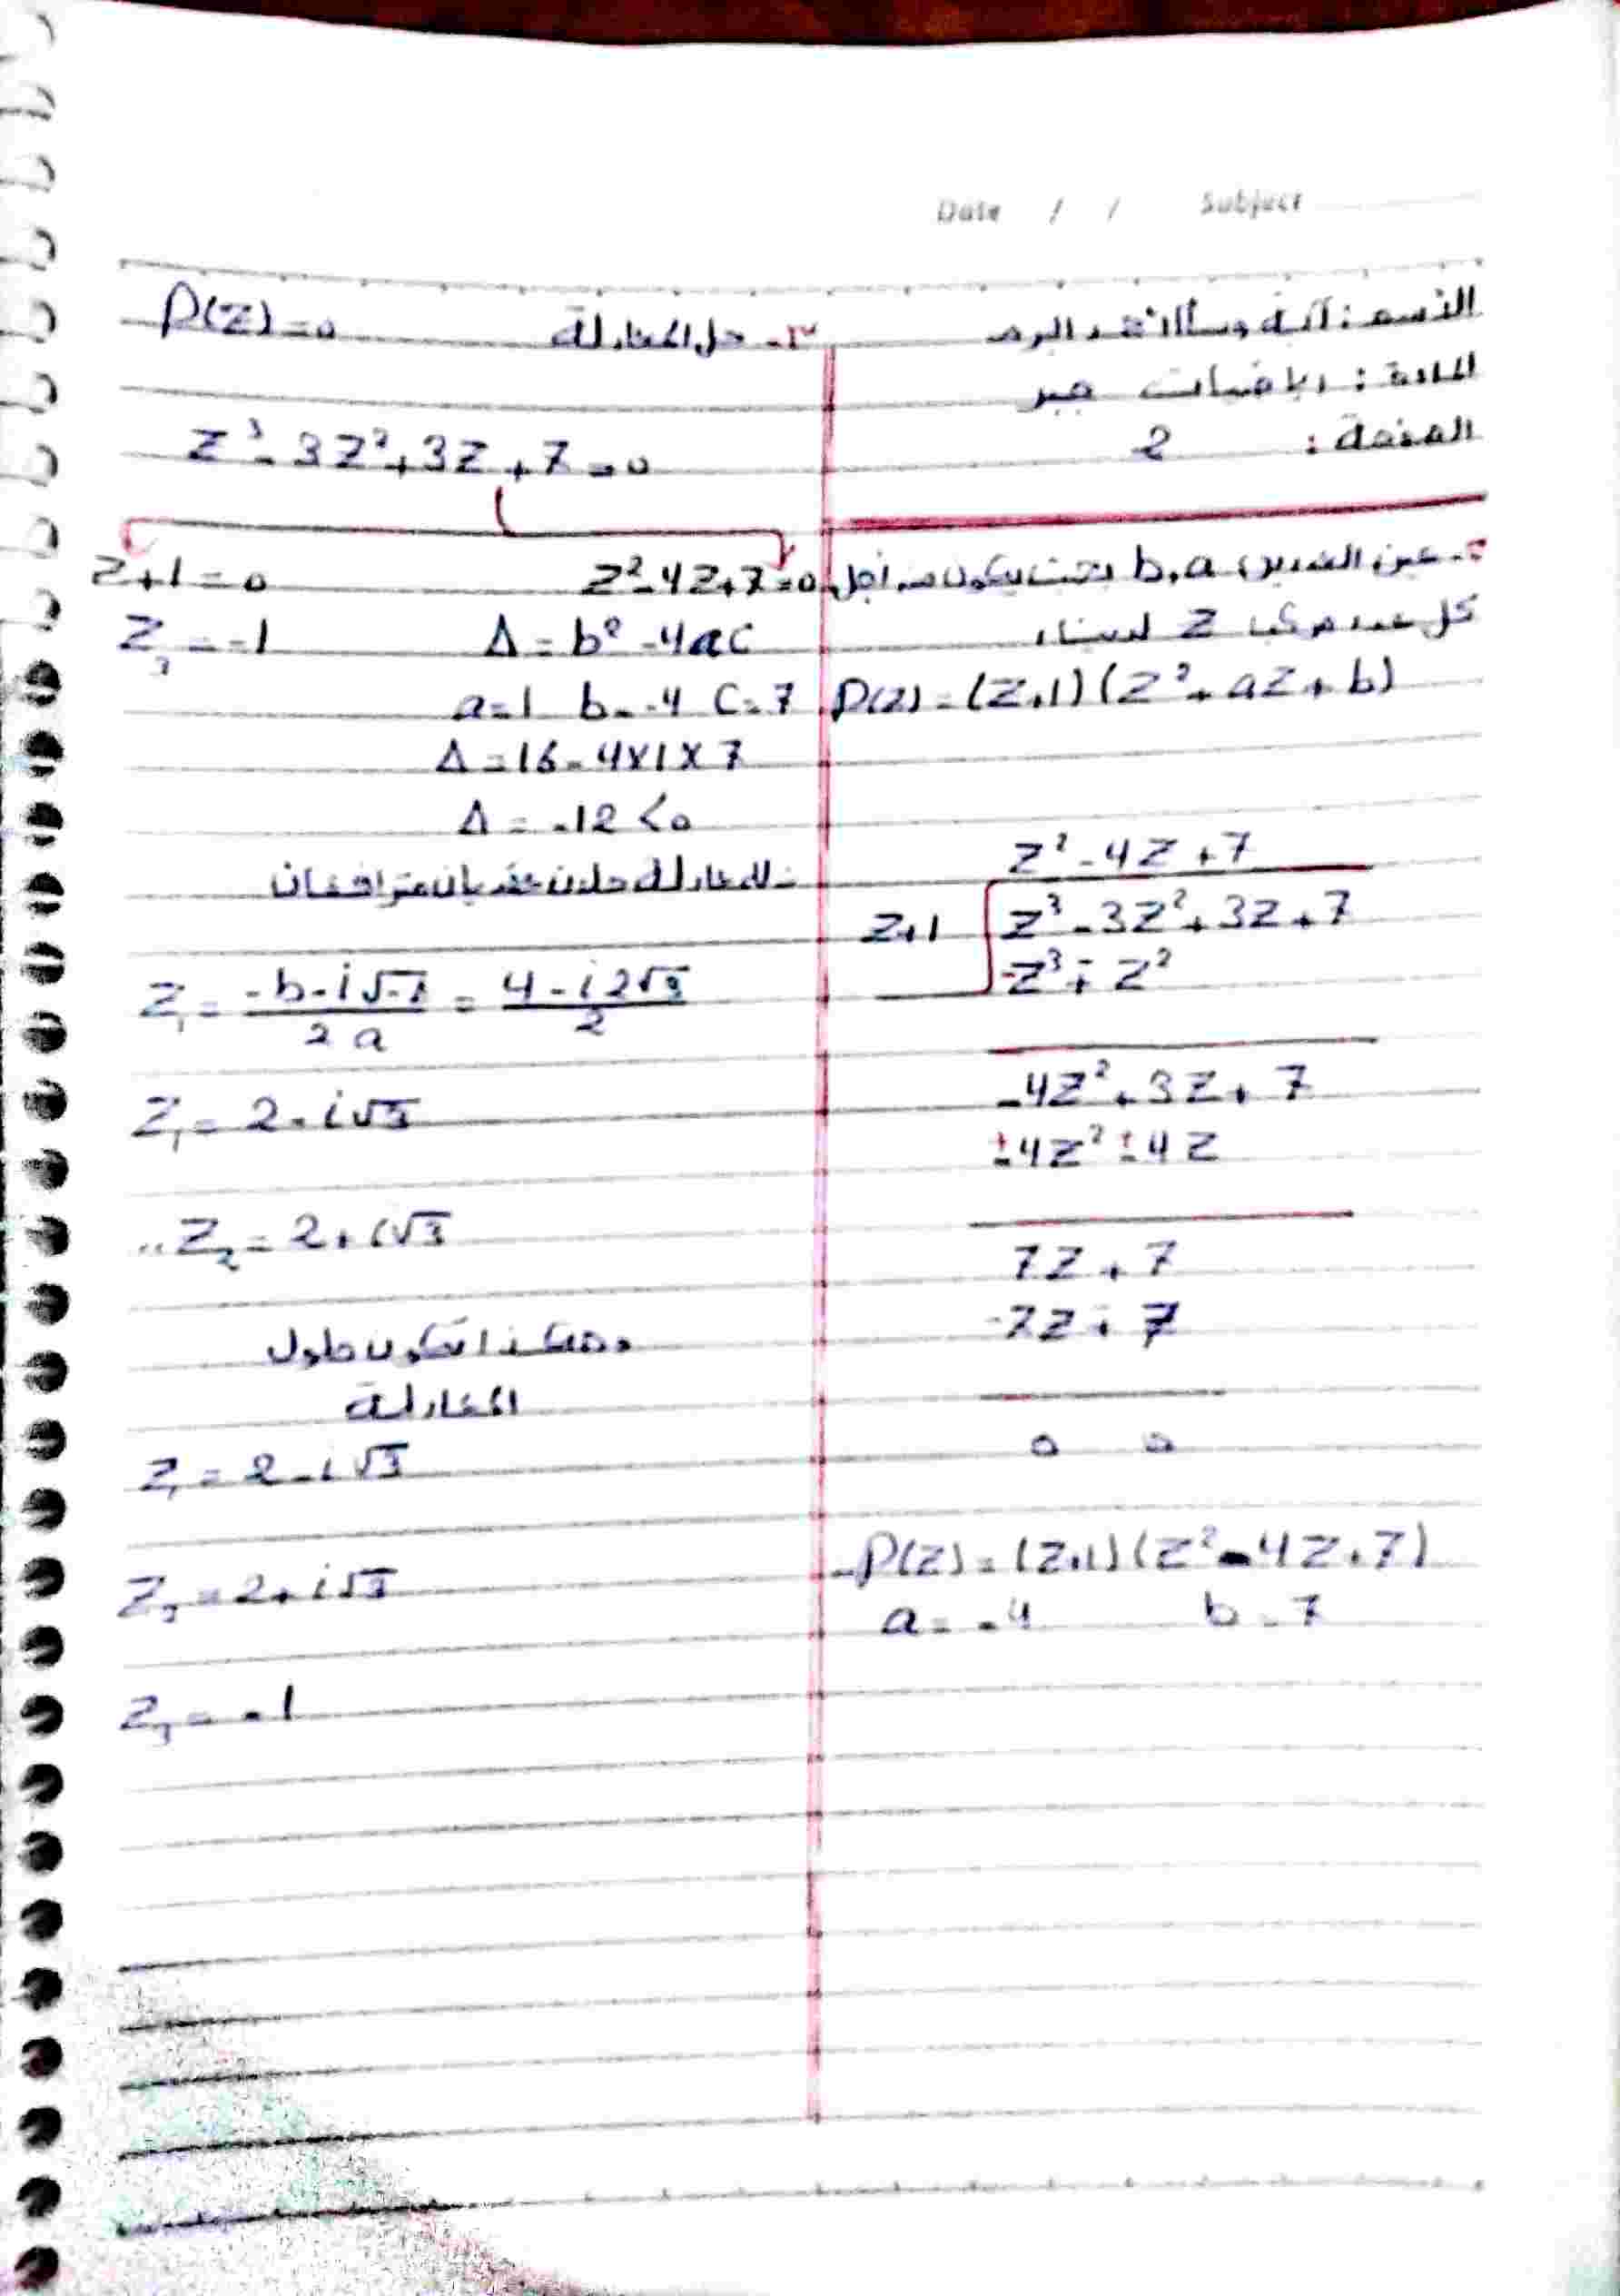 Date / / Subject
الاسم :
المادة : رياضيات جبر
الصفحة : 2
عين العددين b , a بحيث يكون من أجل
كل عدد مركب Z لدينا :
P(z) = (Z+1)(Z² + aZ + b)
Z² - 4Z + 7
Z+1 Z³ - 3Z² + 3Z + 7
-Z³ ∓ Z²
-4Z² + 3Z + 7
±4Z² ± 4Z
7Z + 7
-7Z + 7
0 0
P(Z) = (Z+1)(Z² - 4Z + 7)
a = -4 b = 7
٣- حل المعادلة P(Z) = 0
Z³ - 3Z² + 3Z + 7 = 0
Z+1 = 0 Z² - 4Z + 7 = 0
Z₃ = -1 Δ = b² - 4ac
a=1 b=-4 C=7
Δ = 16 - 4×1×7
Δ = -12 < 0
للمعادلة حلان عقديان مترافقان
Z₁ = (-b - i√-Δ)/2a = (4 - i2√3)/2
Z₁ = 2 - i√3
Z₂ = 2 + i√3
وهكذا تكون حلول
المعادلة
Z₁ = 2 - i√3
Z₂ = 2 + i√3
Z₃ = -1